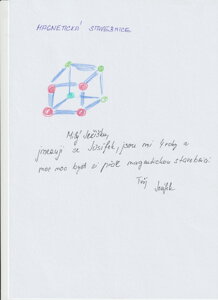 MAGNETICKÁ STAVEBNICE
Milý Ježíšku,
jmenuji se Josífek, jsou mi 4 roky a
moc moc bych si přál magnetickou stavebnici
Tvůj
Josífek